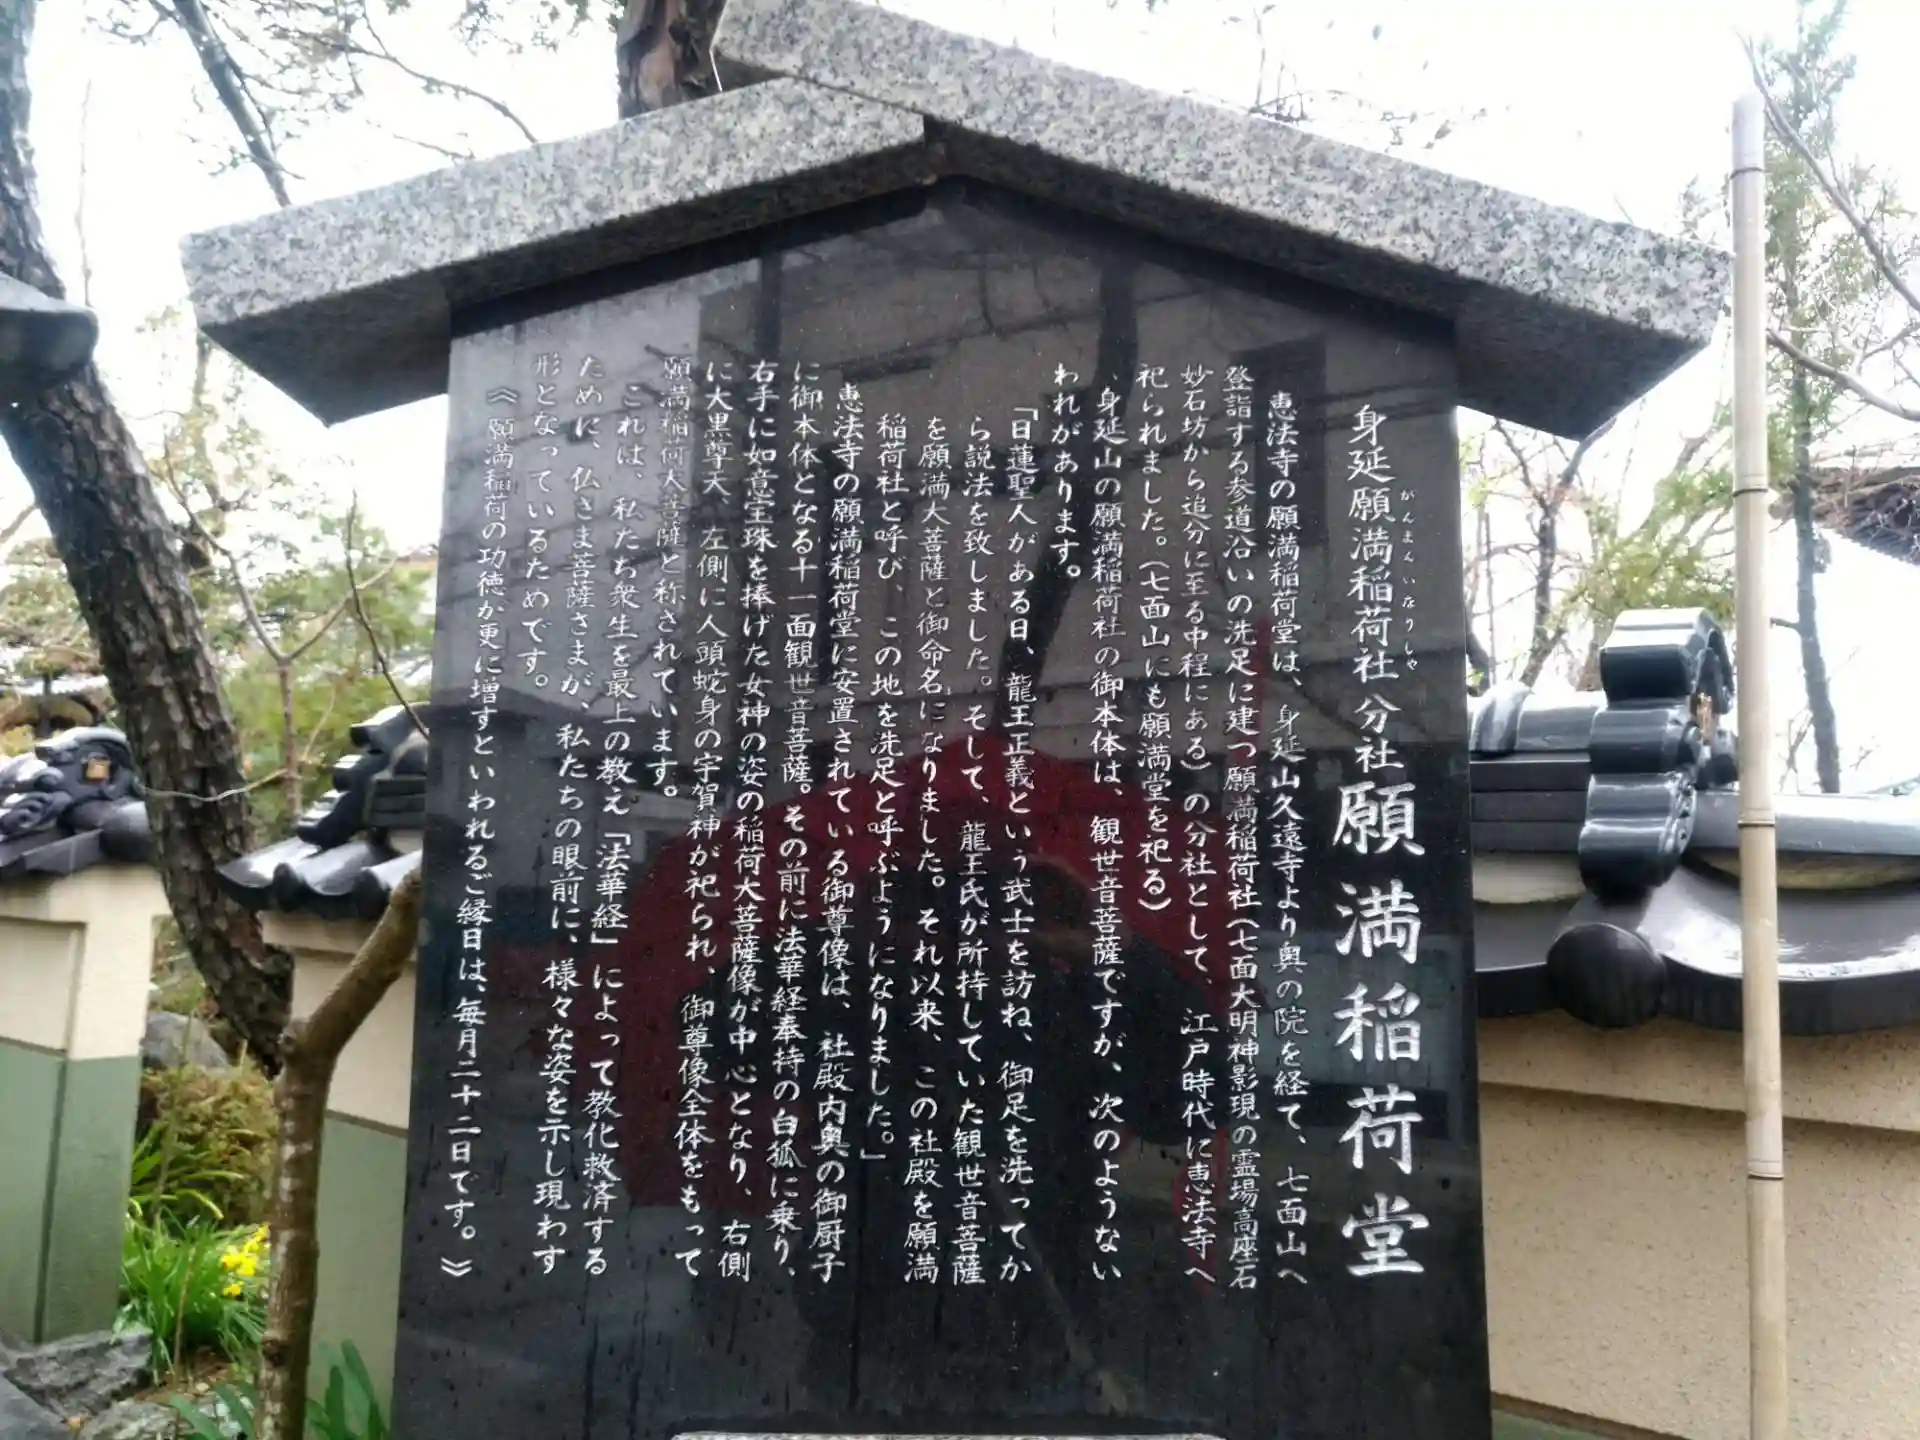 身延願満稲荷社分社 願満稲荷堂
がんまんいなりしゃ
恵法寺の願満稲荷堂は、身延山久遠寺より奥の院を経て、七面山へ
登詣する参道沿いの洗足に建つ願満稲荷社(七面大明神影現の霊場高座石
妙石坊から追分に至る中程にある)の分社として、江戸時代に恵法寺へ
祀られました。(七面山にも願満堂を祀る)
身延山の願満稲荷社の御本体は、観世音菩薩ですが、次のようない
われがあります。
「日蓮聖人がある日、龍王正義という武士を訪ね、御足を洗ってか
ら説法を致しました。そして、龍王氏が所持していた観世音菩薩
を願満大菩薩と御命名になりました。それ以来、この社殿を願満
稲荷社と呼び、この地を洗足と呼ぶようになりました。」
恵法寺の願満稲荷堂に安置されている御尊像は、社殿内奥の御厨子
に御本体となる十一面観世音菩薩。その前に法華経奉持の白狐に乗り、
右手に如意宝珠を捧げた女神の姿の稲荷大菩薩像が中心となり、右側
に大黒尊天、左側に人頭蛇身の宇賀神が祀られ、御尊像全体をもって
願満稲荷大菩薩と称されています。
これは、私たち衆生を最上の教え「法華経」によって教化救済する
ために、仏さま菩薩さまが、私たちの眼前に、様々な姿を示し現わす
形となっているためです。
《願満稲荷の功徳が更に増すといわれるご縁日は、毎月二十二日です。》